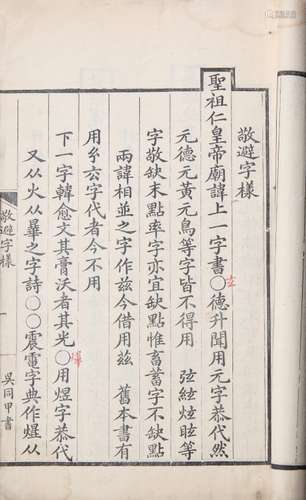 敬避字樣
聖祖仁皇帝廟諱上一字書〇德升聞用元字恭代然
玄
元德元黃元鳥等字皆不得用　弦絃炫眩等
字敬缺末點率字亦宜缺點惟畜蓄字不缺點
兩諱相並之字作兹今借用茲　舊本書有
用字代者今不用
下一字韓愈文其膏沃者其光〇用煜字恭代
又从火从之字詩〇〇震電字典作从
敬避字樣
一
吳同甲書